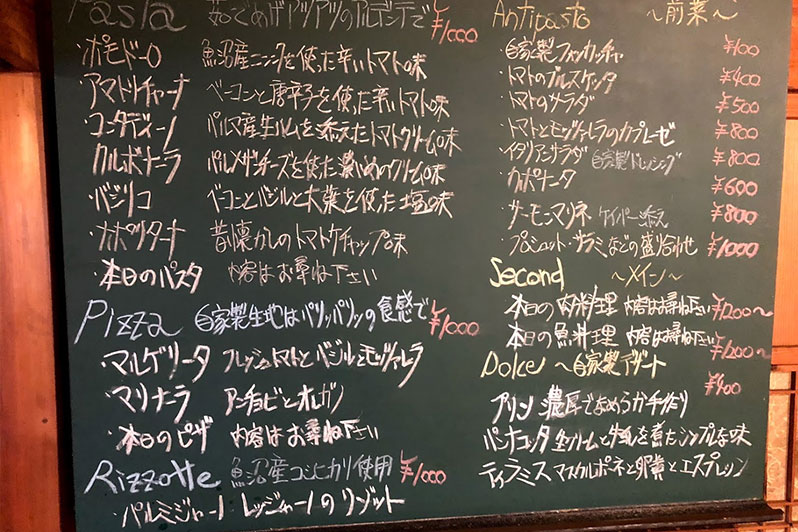 Pasta 茹であげアツアツのアルデンテで ¥1000
・ポモドーロ 魚沼産ニンニクを使った辛いトマト味
・アマトリチャーナ ベーコンと唐辛子を使った辛いトマト味
・コンタディーノ パルマ産生ハムを添えたトマトクリーム味
・カルボナーラ パルメザンチーズを使た濃いめのクリーム味
・バジリコ ベーコンとバジルと大葉を使った塩味
・ナポリターナ 昔懐かしのトマトケチャップ味
・本日のパスタ 内容はお尋ね下さい
Pizza 自家製生地はパリッパリッの食感で ¥1000
・マルゲリータ フレッシュトマトとバジルとモッツァレラ
・マリナーラ アンチョビとオレガノ
・本日のピザ 内容はお尋ね下さい
Rizzotte 魚沼産コシヒカリ使用 ¥1000
・パルミジャーノレッジャーノのリゾット
Antipasto ～前菜～
・自家製フォカッチャ ¥100
・トマトのブルスケッタ ¥400
・トマトのサラダ ¥500
・トマトとモッツァレラのカプレーゼ ¥800
・イタリアンサラダ 自家製ドレッシング ¥800
・カポナータ ¥600
・サーモンマリネ ケイパー添え ¥800
・プロシュット・サラミなどの盛り合わせ ¥1000
Second ～メイン～
本日の肉料理 内容はお尋ね下さい ¥1200～
本日の魚料理 内容はお尋ね下さい ¥1200～
Dolce ～自家製デザート ¥400
プリン 濃厚でなめらかな
パンナコッタ 生クリームと牛乳を煮たシンプルな味
ティラミス マスカルポーネと卵黄とエスプレッソ